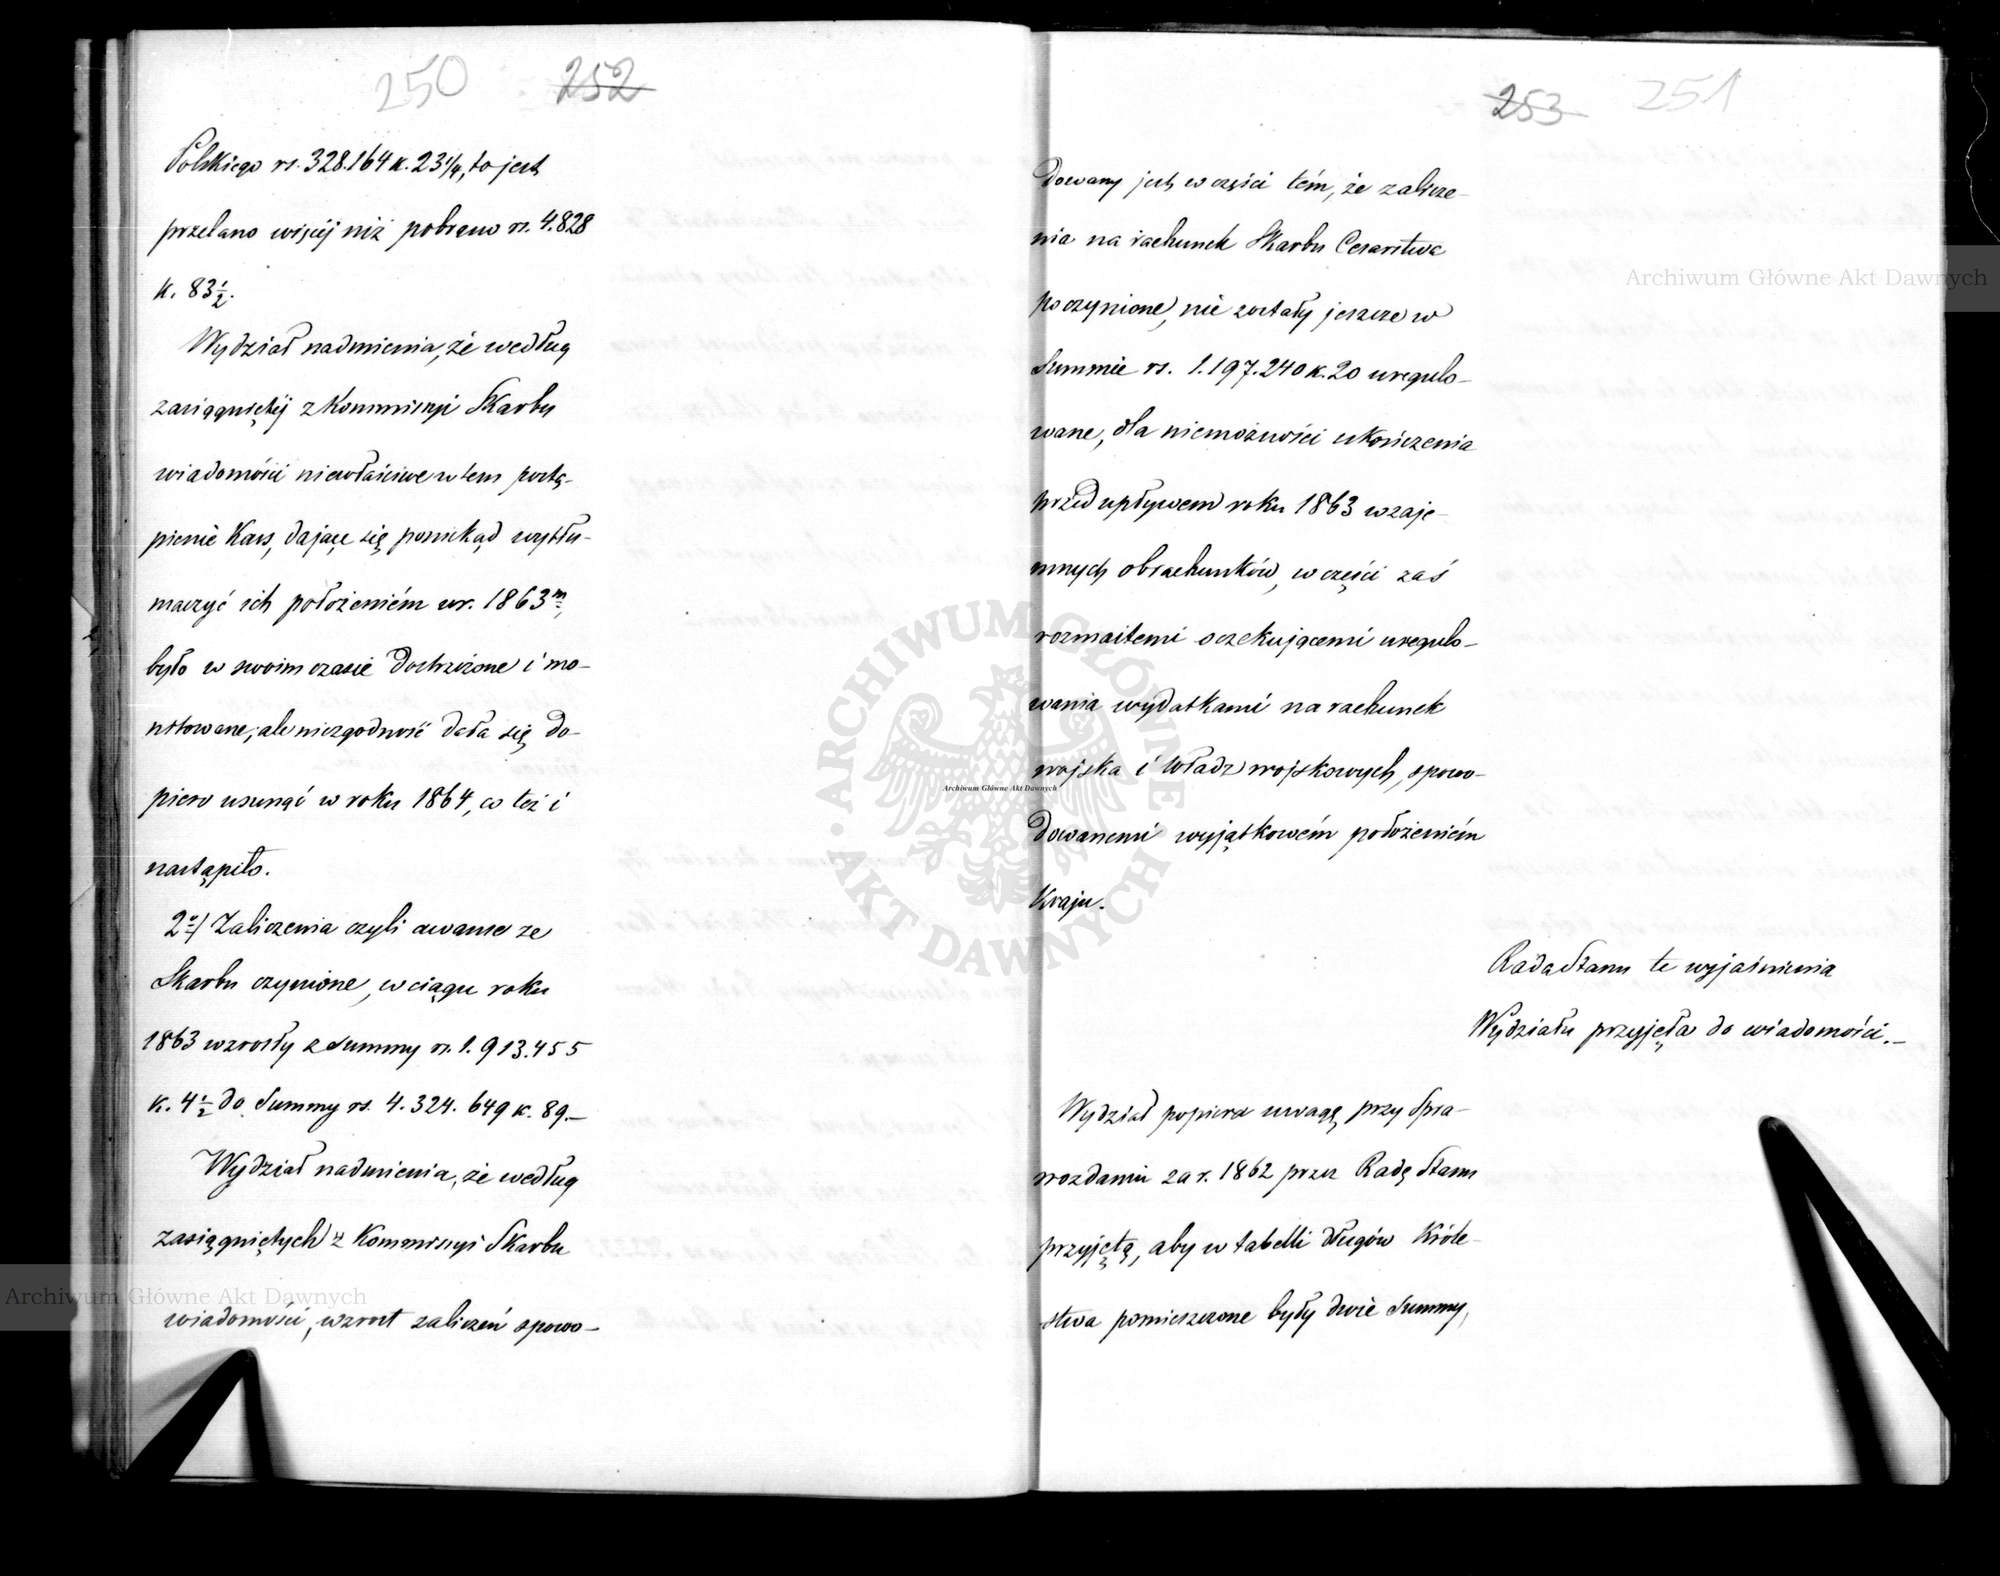 250 252
Polskiego rs. 328.164 k. 23 1/4, to jest
przelano więcéj niż pobrano rs. 4.828
k. 83 1/2.
Wydział nadmienia, że według
zasiągniętéj z Kommissyi Skarbu
wiadomości niewłaściwe w tem postą-
pienie Kass, dające się poniekąd wytłu-
maczyć ich położeniém w r. 1863m,
było w swoim czasie dostrzeżone i mo-
nitowane; ale niezgodność dała się do-
piero usunąć w roku 1864, co téż i
nastąpiło.
2o/ Zaliczenia czyli awanse ze
Skarbu czynione, w ciągu roku
1863 wzrosły z Summy rs. 1.913.455
k. 4 1/2 do Summy rs. 4.324.649 k. 89.—
Wydział nadmienia, że według
zasiągniętych z Kommissyi Skarbu
wiadomości, wzrost zaliczeń spowo-
253 251
dowany jest w części tém, że zalicze-
nia na rachunek Skarbu Cesarstwa
poczynione, nie zostały jeszcze w
Summie rs. 1.197.240 k. 20 uregulo-
wane, dla niemożności ukończenia
przed upływem roku 1863 wzaje-
mnych obrachunków, w części zaś
rozmaitemi oczekującemi uregulo-
wania wydatkami na rachunek
wojska i Władz wojskowych, spowo-
dowanemi wyjątkowém położeniém
Kraju.
Rada Stanu te wyjaśnienia
Wydziału przyjęła do wiadomości.—
Wydział popiera uwagę przy Spra-
wozdaniu za r. 1862 przez Radę Stanu
przyjętą, aby w tabelli długów Króle-
stwa pomieszczone były dwie Summy,
Archiwum Główne Akt Dawnych
Archiwum Główne Akt Dawnych
Archiwum Główne Akt Dawnych
ARCHIWUM GŁÓWNE AKT DAWNYCH